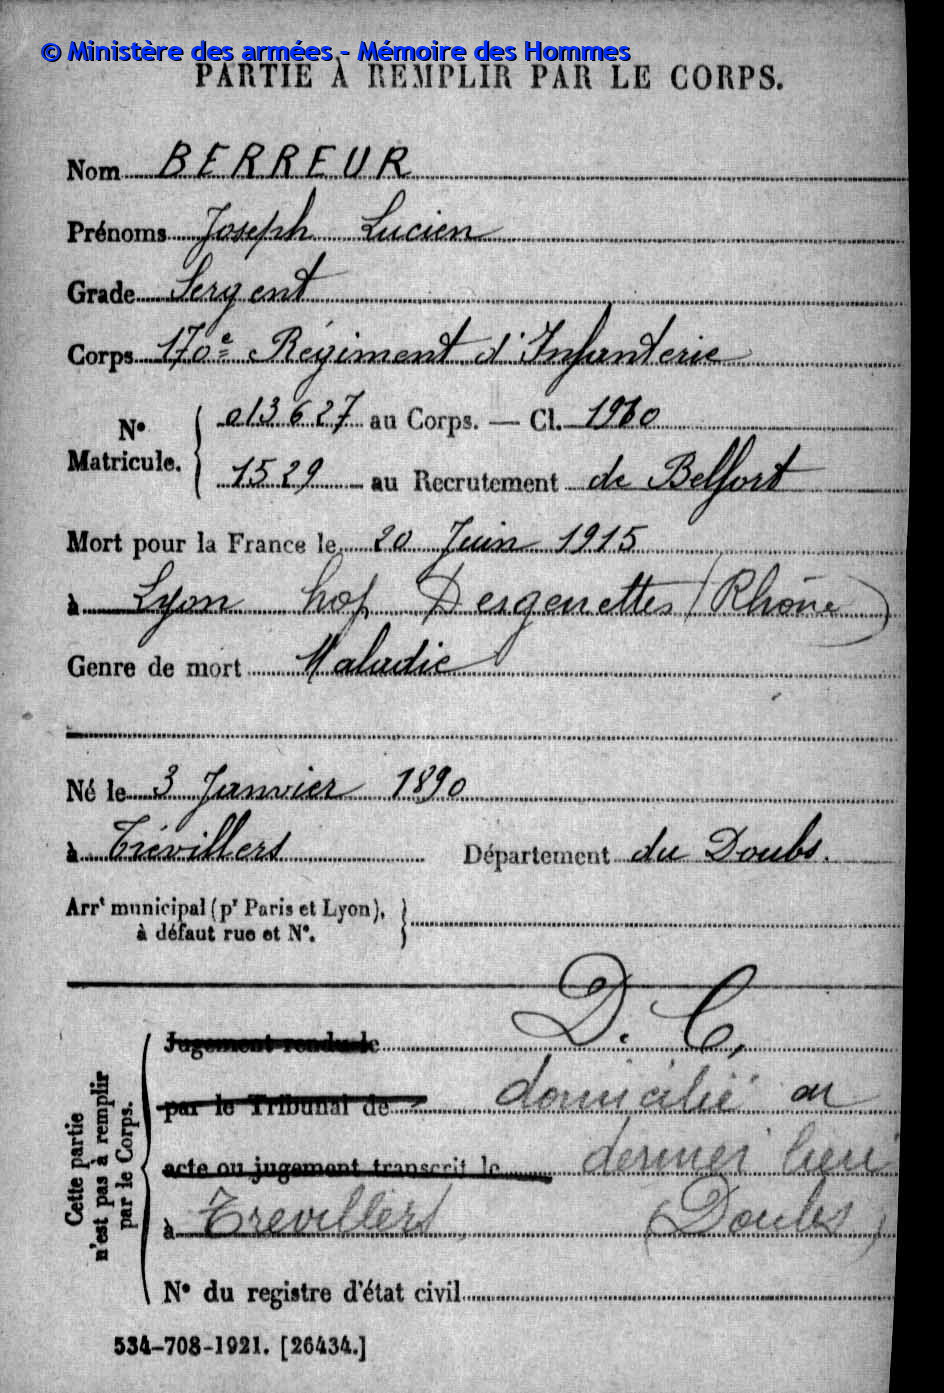 © Ministère des armées - Mémoire des Hommes
PARTIE À REMPLIR PAR LE CORPS.
Nom BERREUR
Prénoms Joseph Lucien
Grade Sergent
Corps 170e Régiment d'Infanterie
N° Matricule. 013627 au Corps. — Cl. 1910
1529 au Recrutement de Belfort
Mort pour la France le 20 Juin 1915
à Lyon hop Desgenettes (Rhône)
Genre de mort Maladie
Né le 3 Janvier 1890
à Trévillers Département du Doubs.
Arrt municipal (pr Paris et Lyon),
à défaut rue et N°.
D. C,
Cette partie
n'est pas à remplir
par le Corps.
Jugement rendu le
par le Tribunal de domicilié au
acte ou jugement transcrit le dernier lieu
à Trevillers, (Doubs)
N° du registre d'état civil
534-708-1921. [26434.]